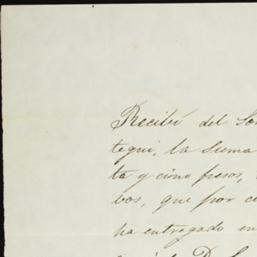 Recibí del
tegui, la suma
ta y cinco pesos,
bos, que por
ha entregado en